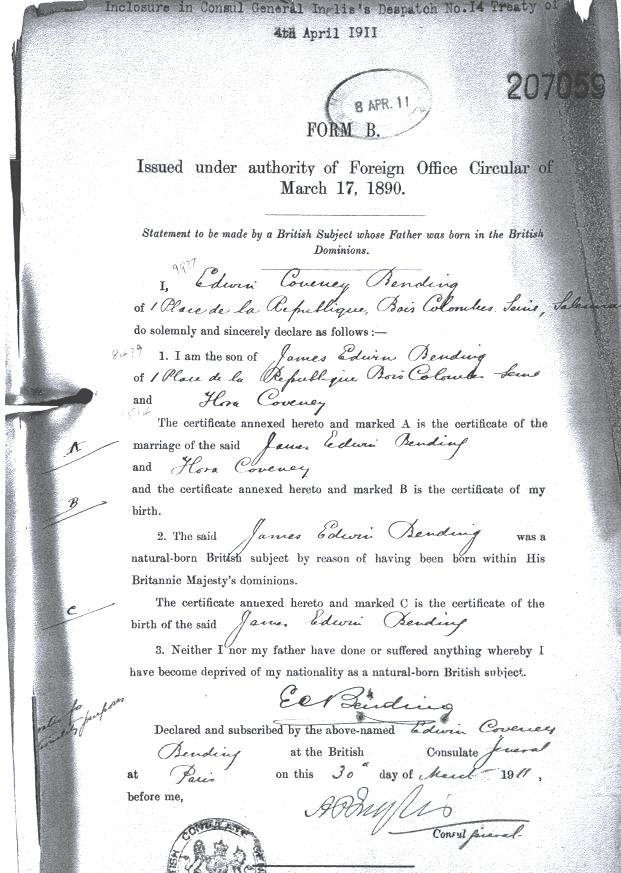 Inclosure in Consul General Inglis's Despatch No.14 Treaty of
4th April 1911
207059
8 APR. 11
FORM B.
Issued under authority of Foreign Office Circular of
March 17, 1890.
Statement to be made by a British Subject whose Father was born in the British
Dominions.
I, Edwin Coveney Bending
of 1 Place de la Republique, Bois Colombes Seine, Salesman
do solemnly and sincerely declare as follows :—
1. I am the son of James Edwin Bending
of 1 Place de la Republique Bois Colombes Seine
and Flora Coveney
The certificate annexed hereto and marked A is the certificate of the
A
marriage of the said James Edwin Bending
and Flora Coveney
and the certificate annexed hereto and marked B is the certificate of my
B
birth.
2. The said James Edwin Bending was a
natural-born British subject by reason of having been born within His
Britannic Majesty's dominions.
The certificate annexed hereto and marked C is the certificate of the
C
birth of the said James Edwin Bending
3. Neither I nor my father have done or suffered anything whereby I
have become deprived of my nationality as a natural-born British subject.
E C Bending
Declared and subscribed by the above-named Edwin Coveney
Bending at the British Consulate General
at Paris on this 30th day of March 1911,
before me,
Consul General.
CONSULATE